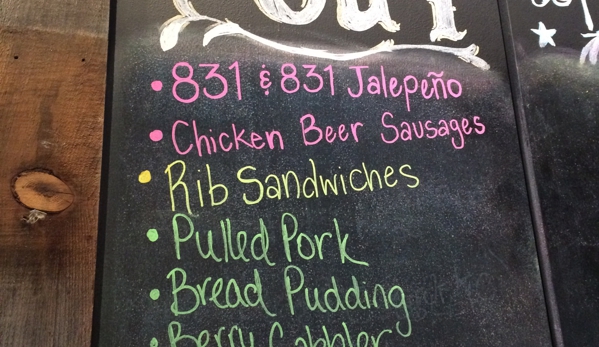 • 831 & 831 Jalepeño
• Chicken Beer Sausages
• Rib Sandwiches
• Pulled Pork
• Bread Pudding
Berry Cobbler